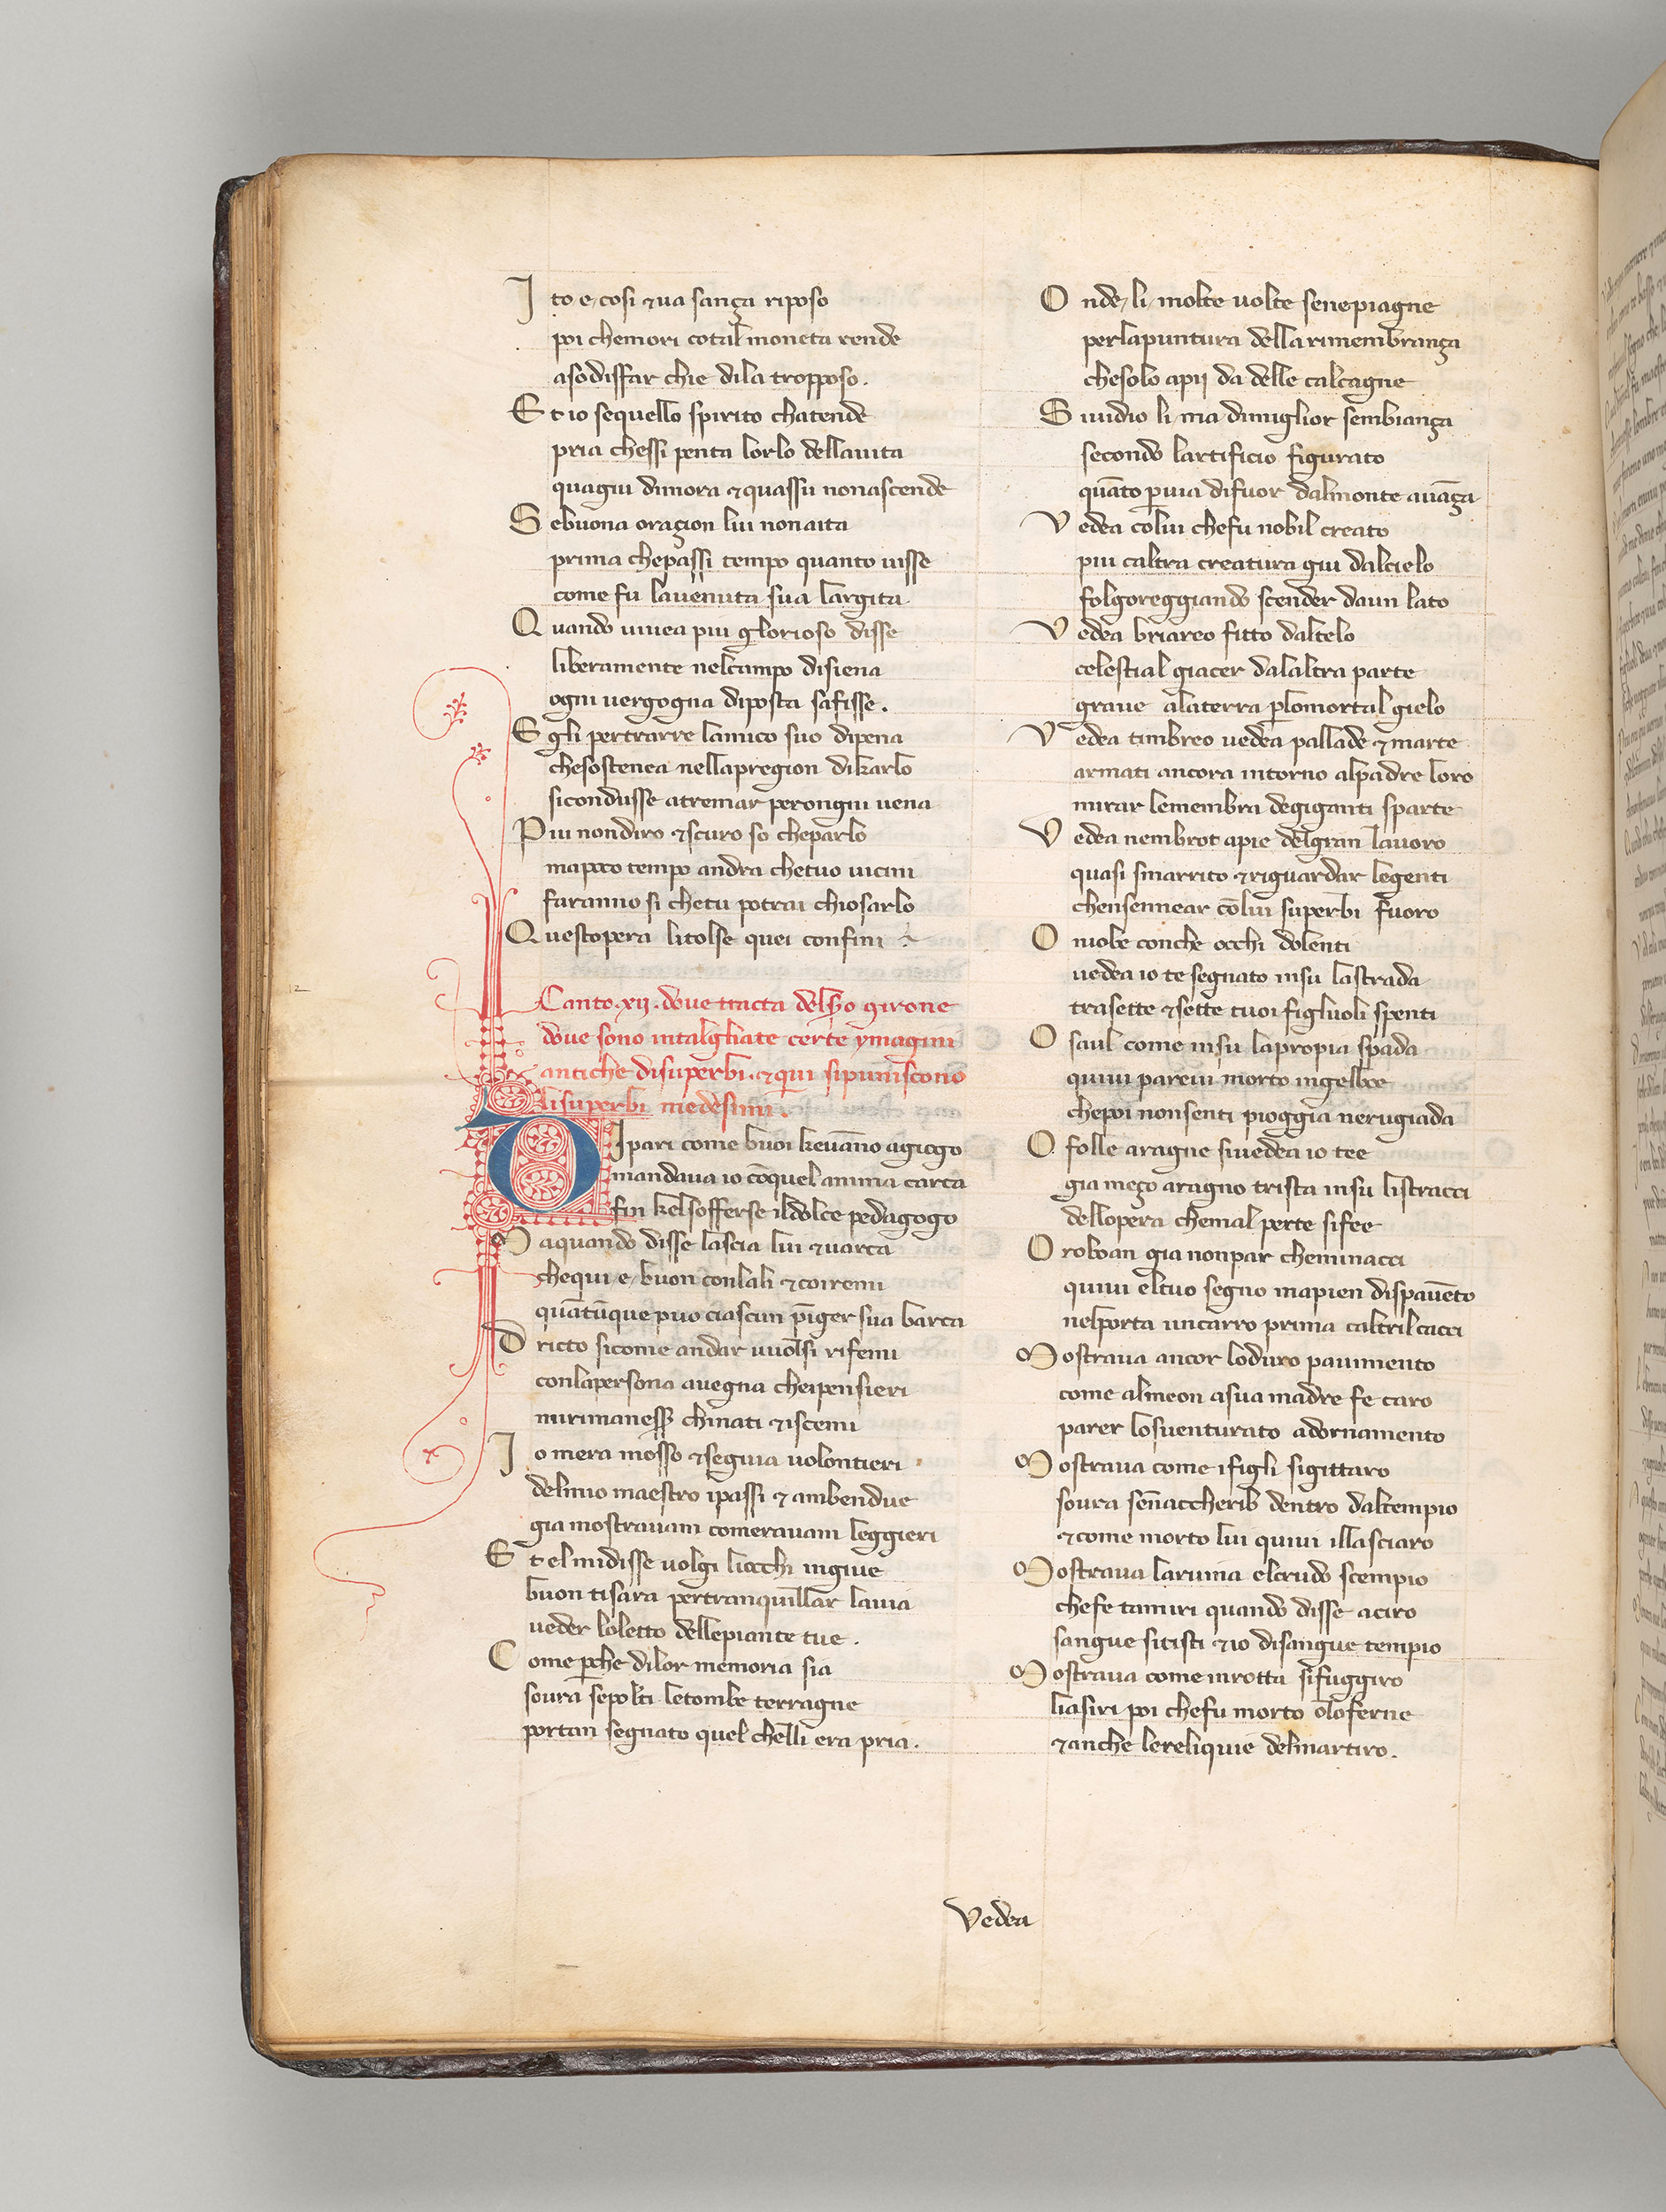 I to e cosi & ua sança riposo
poi che mori cotal moneta rende
a sodisfar chie dila tropposo.
E t io sequello spirito chatende
pria chessi penta lorlo dellauita
quagiu dimora & quassu nonascende
S ebuona oraçion lui nonaita
prima chepassi tempo quanto uisse
come fu lauenuta sua largita
Q uando uiuea piu glorioso disse
liberamente nelcampo disiena
ogni uergogna diposta safisse.
E gli pertrarre lamico suo dipena
chesostenea nellapregion dikarlo
sicondusse atremar perongni uena
P iu nondiro & scuro so cheparlo
mapoco tempo andra chetuo uicini
faranno si chetu potrai chiosarlo
Q uestopera litolse quei confini
Canto .xij. doue tracta delsco girone
doue sono intalgliate certe ymagini
antiche disuperbi. & qui sipuniscono
lisuperbi medesimi.
D I pari come buoi keuāno agiogo
mandaua io cōquel anima carca
fin kelsofferse ildolce pedagogo
M aquando disse lascia lui & uarca
chequi e buon conlali & coiremi
quātūque puo ciascun piger sua barca
D ricto sicome andar uuolsi rifemi
conlapersona auegna cheipensieri
mirimaness chinati & iscemi
I o mera mosso & seguia uolontieri
delmio maestro ipassi & ambendue
gia mostrauam comerauam leggieri
E t el midisse uolgi liocchi ingiue
buon tisara pertranquillar lauia
ueder loletto dellepiante tue.
C ome pche dilor memoria sia
soura sepolti letombe terragne
portan segnato quel chelli era pria.
O nde li molte uolte senepiagne
perlapuntura dellarimembrança
chesolo apij da delle calcagne
S iuidio li ma dimiglior sembiança
secondo lartificio figurato
quāto p uia difuor dalmonte auāça
V edea colui chefu nobil creato
piu caltra creatura giu dalcielo
folgoreggiando scender daun lato
V edea briareo fitto daltelo
celestial giacer dalaltra parte
graue alaterra plomortal gielo
V edea timbreo uedea pallade & marte
armati ancora intorno alpadre loro
mirar lemembra degiganti sparte
V edea nembrot apie delgran lauoro
quasi smarrito & riguardar legenti
chensennear cōlui superbi fuoro
O niobe conche occhi dolenti
uedea io te segnato insu lastrada
trasette & sette tuoi figliuoli spenti
O saul come insu lapropia spada
quiui pareui morto ingelboe
chepoi nonsenti pioggia nerugiada
O folle aragne siuedea io tee
gia meço aragno trista insu listracci
dellopera chemal perte sifee
O roboan gia nonpar cheminacci
quiui eltuo segno mapien dispauēto
nelporta uncarro prima caltrilcacci
M ostraua ancor loduro pauimento
come almeon asua madre fe caro
parer losuenturato adornamento
M ostraua come ifigli sigittaro
soura sennaccherib dentro daltempio
& come morto lui quiui illasciaro
M ostraua laruina elcrudo scempio
chefe tamiri quando disse aciro
sangue sitisti & io disangue tempio
M ostraua come inrotta sifuggiro
liasiri poi chefu morto oloferne
& anche lereliquie delmartiro.
Vedea